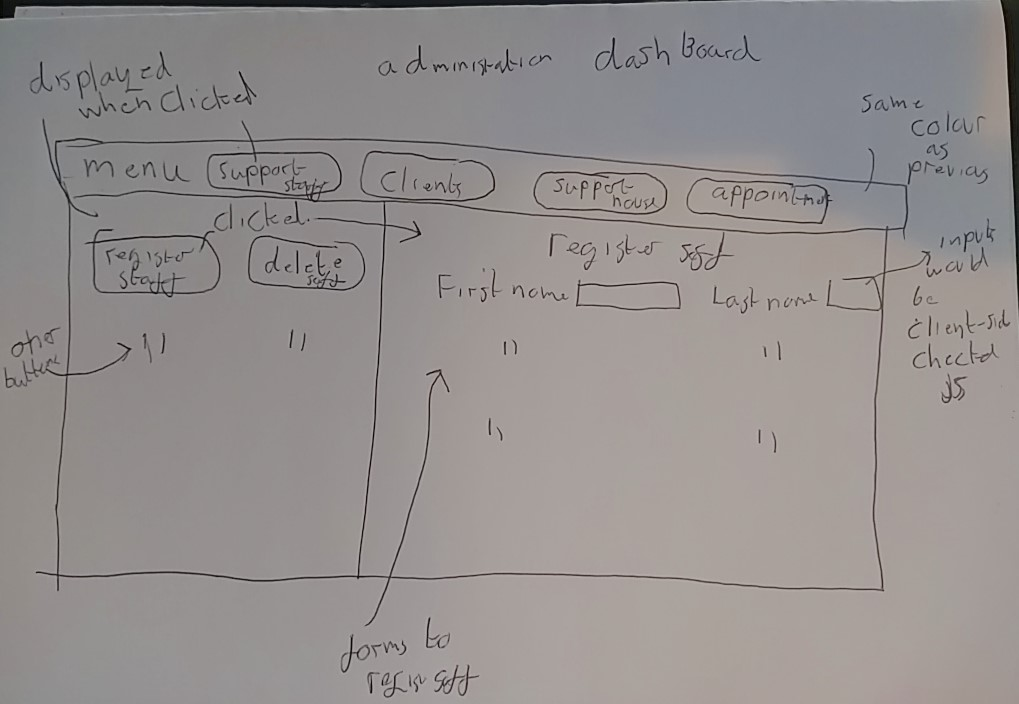 administration dashBoard
displayed
when Clicked
same
colour
as
previous
menu
support
staff
Clients
support
house
appointment
clicked
register
staff
delete
staff
register staff
First name
Last name
inputs
would
be
client-side
checked
JS
other
buttons
forms to